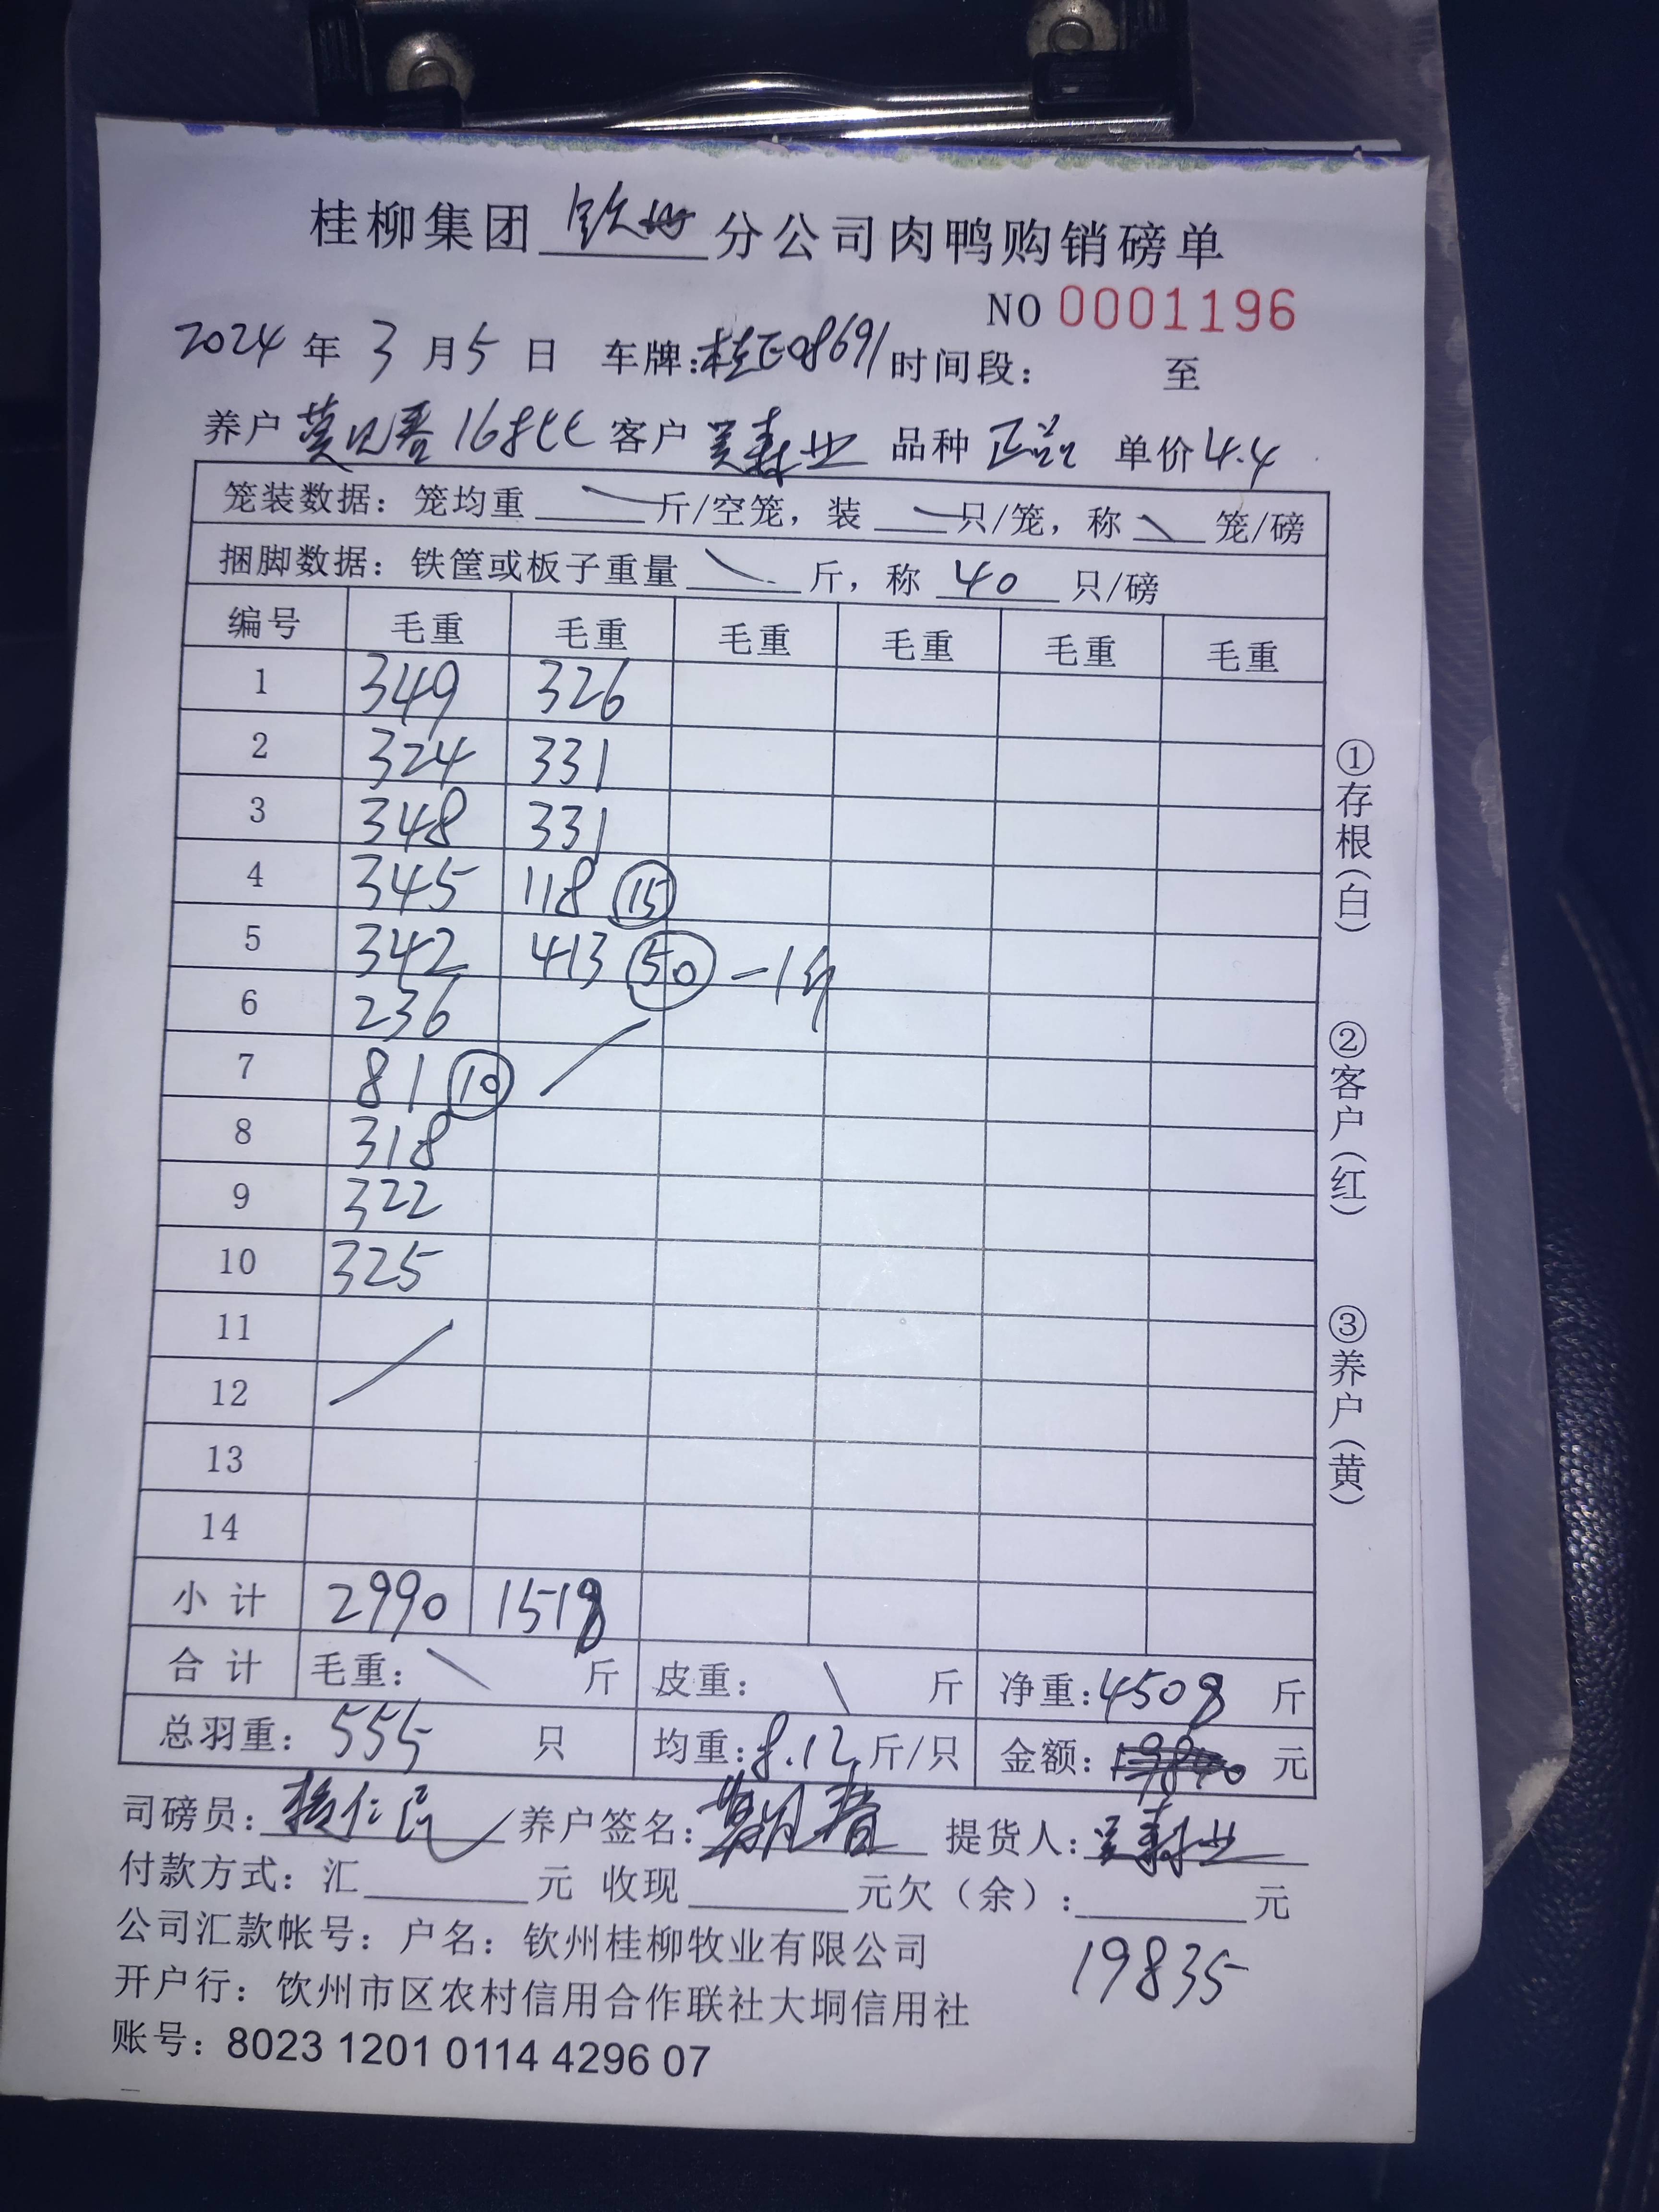 桂柳集团 钦州 分公司肉鸭购销磅单
NO 0001196
2024 年 3 月 5 日 车牌: 桂E08691 时间段: 至
养户 莫 春 168 客户 吴寿业 品种 正品 单价 4.4
笼装数据: 笼均重 斤/空笼, 装 只/笼, 称 笼/磅
捆脚数据: 铁筐或板子重量 斤, 称 40 只/磅
编号 毛重 毛重 毛重 毛重 毛重 毛重
1 349 326
2 324 331
3 348 331
4 345 118 (15)
5 342 413 (50) -1斤
6 236
7 81 (10)
8 318
9 322
10 325
11
12
13
14
小 计 2990 1518
合 计 毛重: 斤 皮重: 斤 净重: 4508 斤
总羽重: 555 只 均重: 8.12 斤/只 金额: 元
司磅员: 仁 养户签名: 春 提货人: 吴寿业
付款方式: 汇 元 收现 元欠(余): 元
公司汇款帐号: 户名: 钦州桂柳牧业有限公司
19835
开户行: 饮州市区农村信用合作联社大垌信用社
账号: 8023 1201 0114 4296 07
①存根(白)
②客户(红)
③养户(黄)